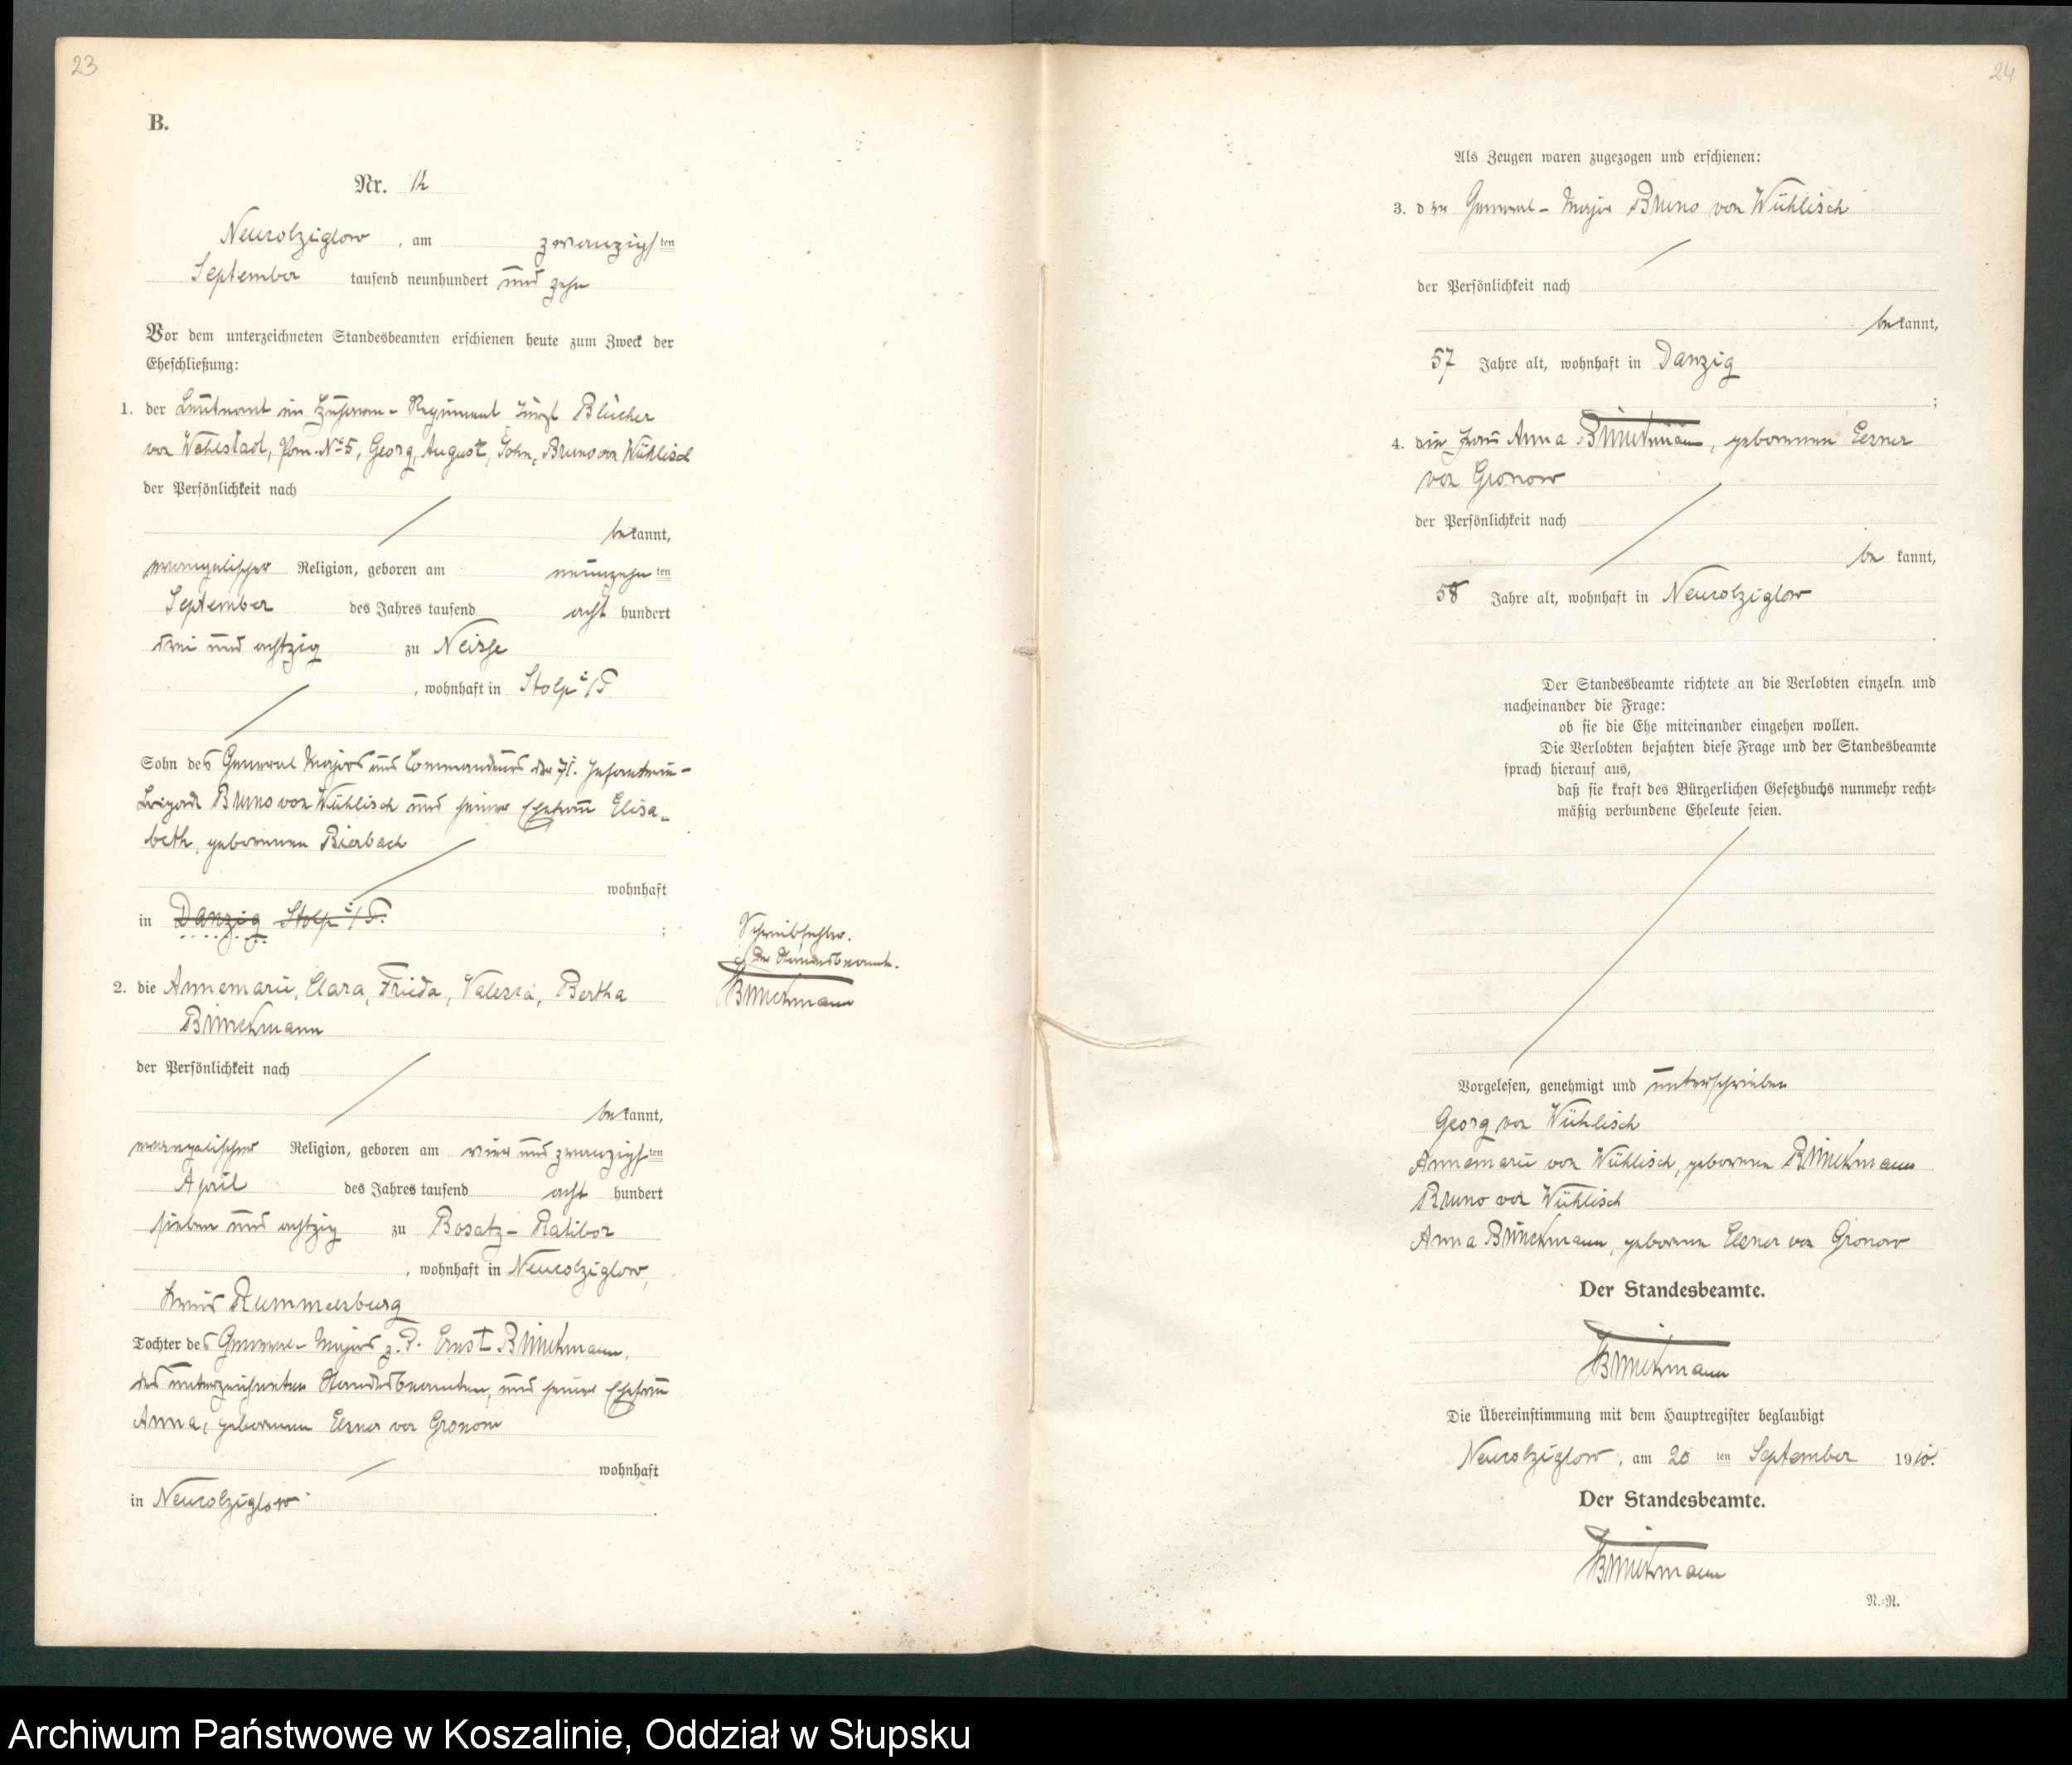 23
B.
Nr. 12
Neukolziglow, am zwanzigsten
September tausend neunhundert und zehn
Vor dem unterzeichneten Standesbeamten erschienen heute zum Zweck der
Eheschließung:
1. der Leutnant im Husaren-Regiment Fürst Blücher
von Wahlstadt, Pom. No 5, Georg, August, John, Bruno von Wühlisch
der Persönlichkeit nach
bekannt,
evangelischer Religion, geboren am neunzehnten
September des Jahres tausend acht hundert
drei und achtzig zu Neisse
, wohnhaft in Stolp i/P
Sohn des General Majors und Commandeurs der 71. Infanterie-
Brigade Bruno von Wühlisch und seiner Ehefrau Elisa-
beth, geborenen Bierbach
wohnhaft
in Danzig Stolp i/P. ;
Schreibfehler.
Der Standesbeamte.
Brinckmann
2. die Annemarie, Clara, Frieda, Valeska, Bertha
Brinckmann
der Persönlichkeit nach
bekannt,
evangelischer Religion, geboren am vier und zwanzigsten
April des Jahres tausend acht hundert
sieben und achtzig zu Bosatz-Ratibor
, wohnhaft in Neukolziglow,
Kreis Rummelsburg
Tochter des General-Majors z. D. Ernst Brinckmann,
des unterzeichneten Standesbeamten, und seiner Ehefrau
Anna, geborenen Elsner von Gronow
wohnhaft
in Neukolziglow.
24
Als Zeugen waren zugezogen und erschienen:
3. der General-Major Bruno von Wühlisch
der Persönlichkeit nach
bekannt,
57 Jahre alt, wohnhaft in Danzig ;
4. die Frau Anna Brinckmann, geborenen Elsner
von Gronow
der Persönlichkeit nach
be kannt,
58 Jahre alt, wohnhaft in Neukolziglow
Der Standesbeamte richtete an die Verlobten einzeln und
nacheinander die Frage:
ob sie die Ehe miteinander eingehen wollen.
Die Verlobten bejahten diese Frage und der Standesbeamte
sprach hierauf aus,
daß sie kraft des Bürgerlichen Gesetzbuchs nunmehr recht-
mäßig verbundene Eheleute seien.
Vorgelesen, genehmigt und unterschrieben
Georg von Wühlisch
Annemarie von Wühlisch, geborene Brinckmann
Bruno von Wühlisch
Anna Brinckmann, geborene Elsner von Gronow
Der Standesbeamte.
Brinckmann
Die Übereinstimmung mit dem Hauptregister beglaubigt
Neukolziglow, am 20 ten September 1910.
Der Standesbeamte.
Brinckmann
N.-R.
Archiwum Państwowe w Koszalinie, Oddział w Słupsku